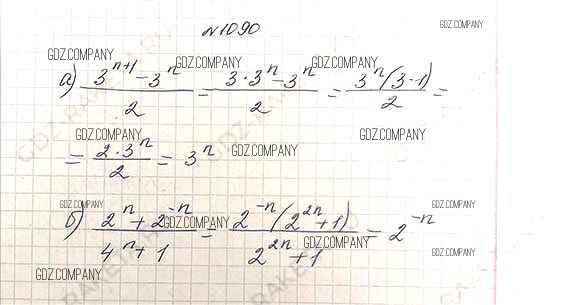 №1090
GDZ.COMPANY
GDZ.COMPANY GDZ.COMPANY GDZ.COMPANY
а) (3^(n+1) - 3^n)/2 = (3·3^n - 3^n)/2 = (3^n(3-1))/2 =
GDZ.COMPANY GDZ.COMPANY
= (2·3^n)/2 = 3^n GDZ.COMPANY
GDZ.COMPANY GDZ.COMPANY
б) (2^n + 2^(-n))/(4^n + 1) = (2^(-n)(2^(2n) + 1))/(2^(2n) + 1) = 2^(-n)
GDZ.COMPANY
GDZ.COMPANY GDZ.COMPANY
GDZ.COMPANY